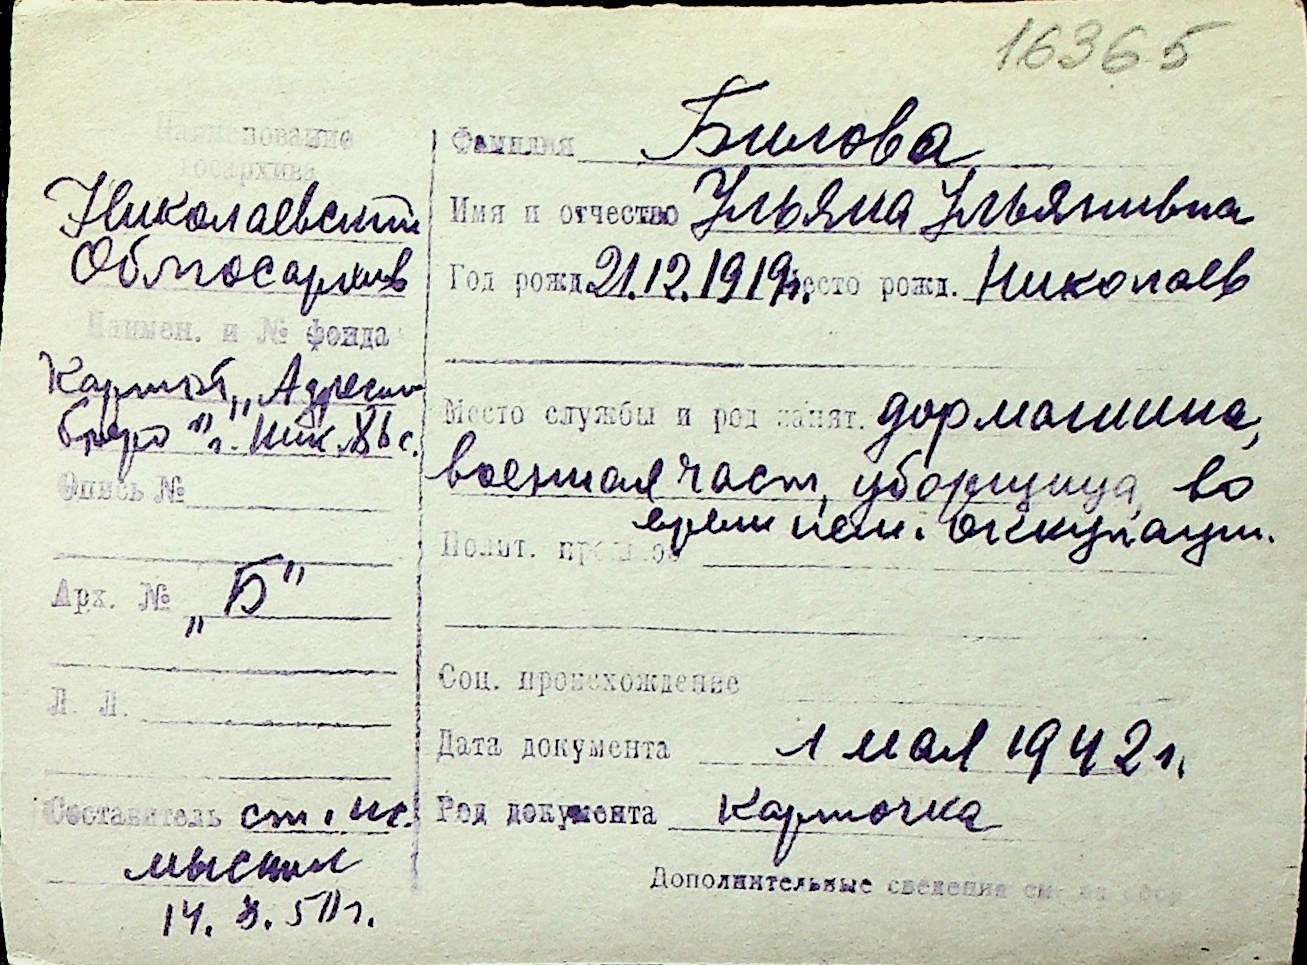 16365
Наименование
госархива
Николаевский
Облгосархив
Наимен. и № фонда
Картот. "Адресн.
бюро" г. Ник.
Опись №
Арх. № "Б"
Л. Л.
Составитель ст. ис.
14. 50 г.
Фамилия Билова
Имя и отчество Ульяна Ульяновна
Год рожд. 21.12.1919 г. Место рожд. Николаев
Место службы и род занят. дормашина,
военная част, уборщица, во
время нем. оккупации.
Полит. прошлое
Соц. происхождение
Дата документа 1 мая 1942 г.
Род документа Карточка
Дополнительные сведения см. на обор